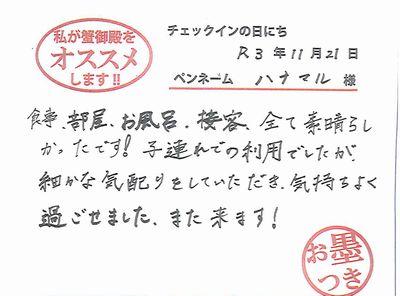 私が蟹御殿を
オススメ
します!!
チェックインの日にち
R3年11月21日
ペンネーム ハナマル 様
食事、部屋、お風呂、接客、全て素晴らし
かったです!子連れでの利用でしたが、
細かな気配りをしていただき、気持ちよく
過ごせました、また来ます!
お墨
つき